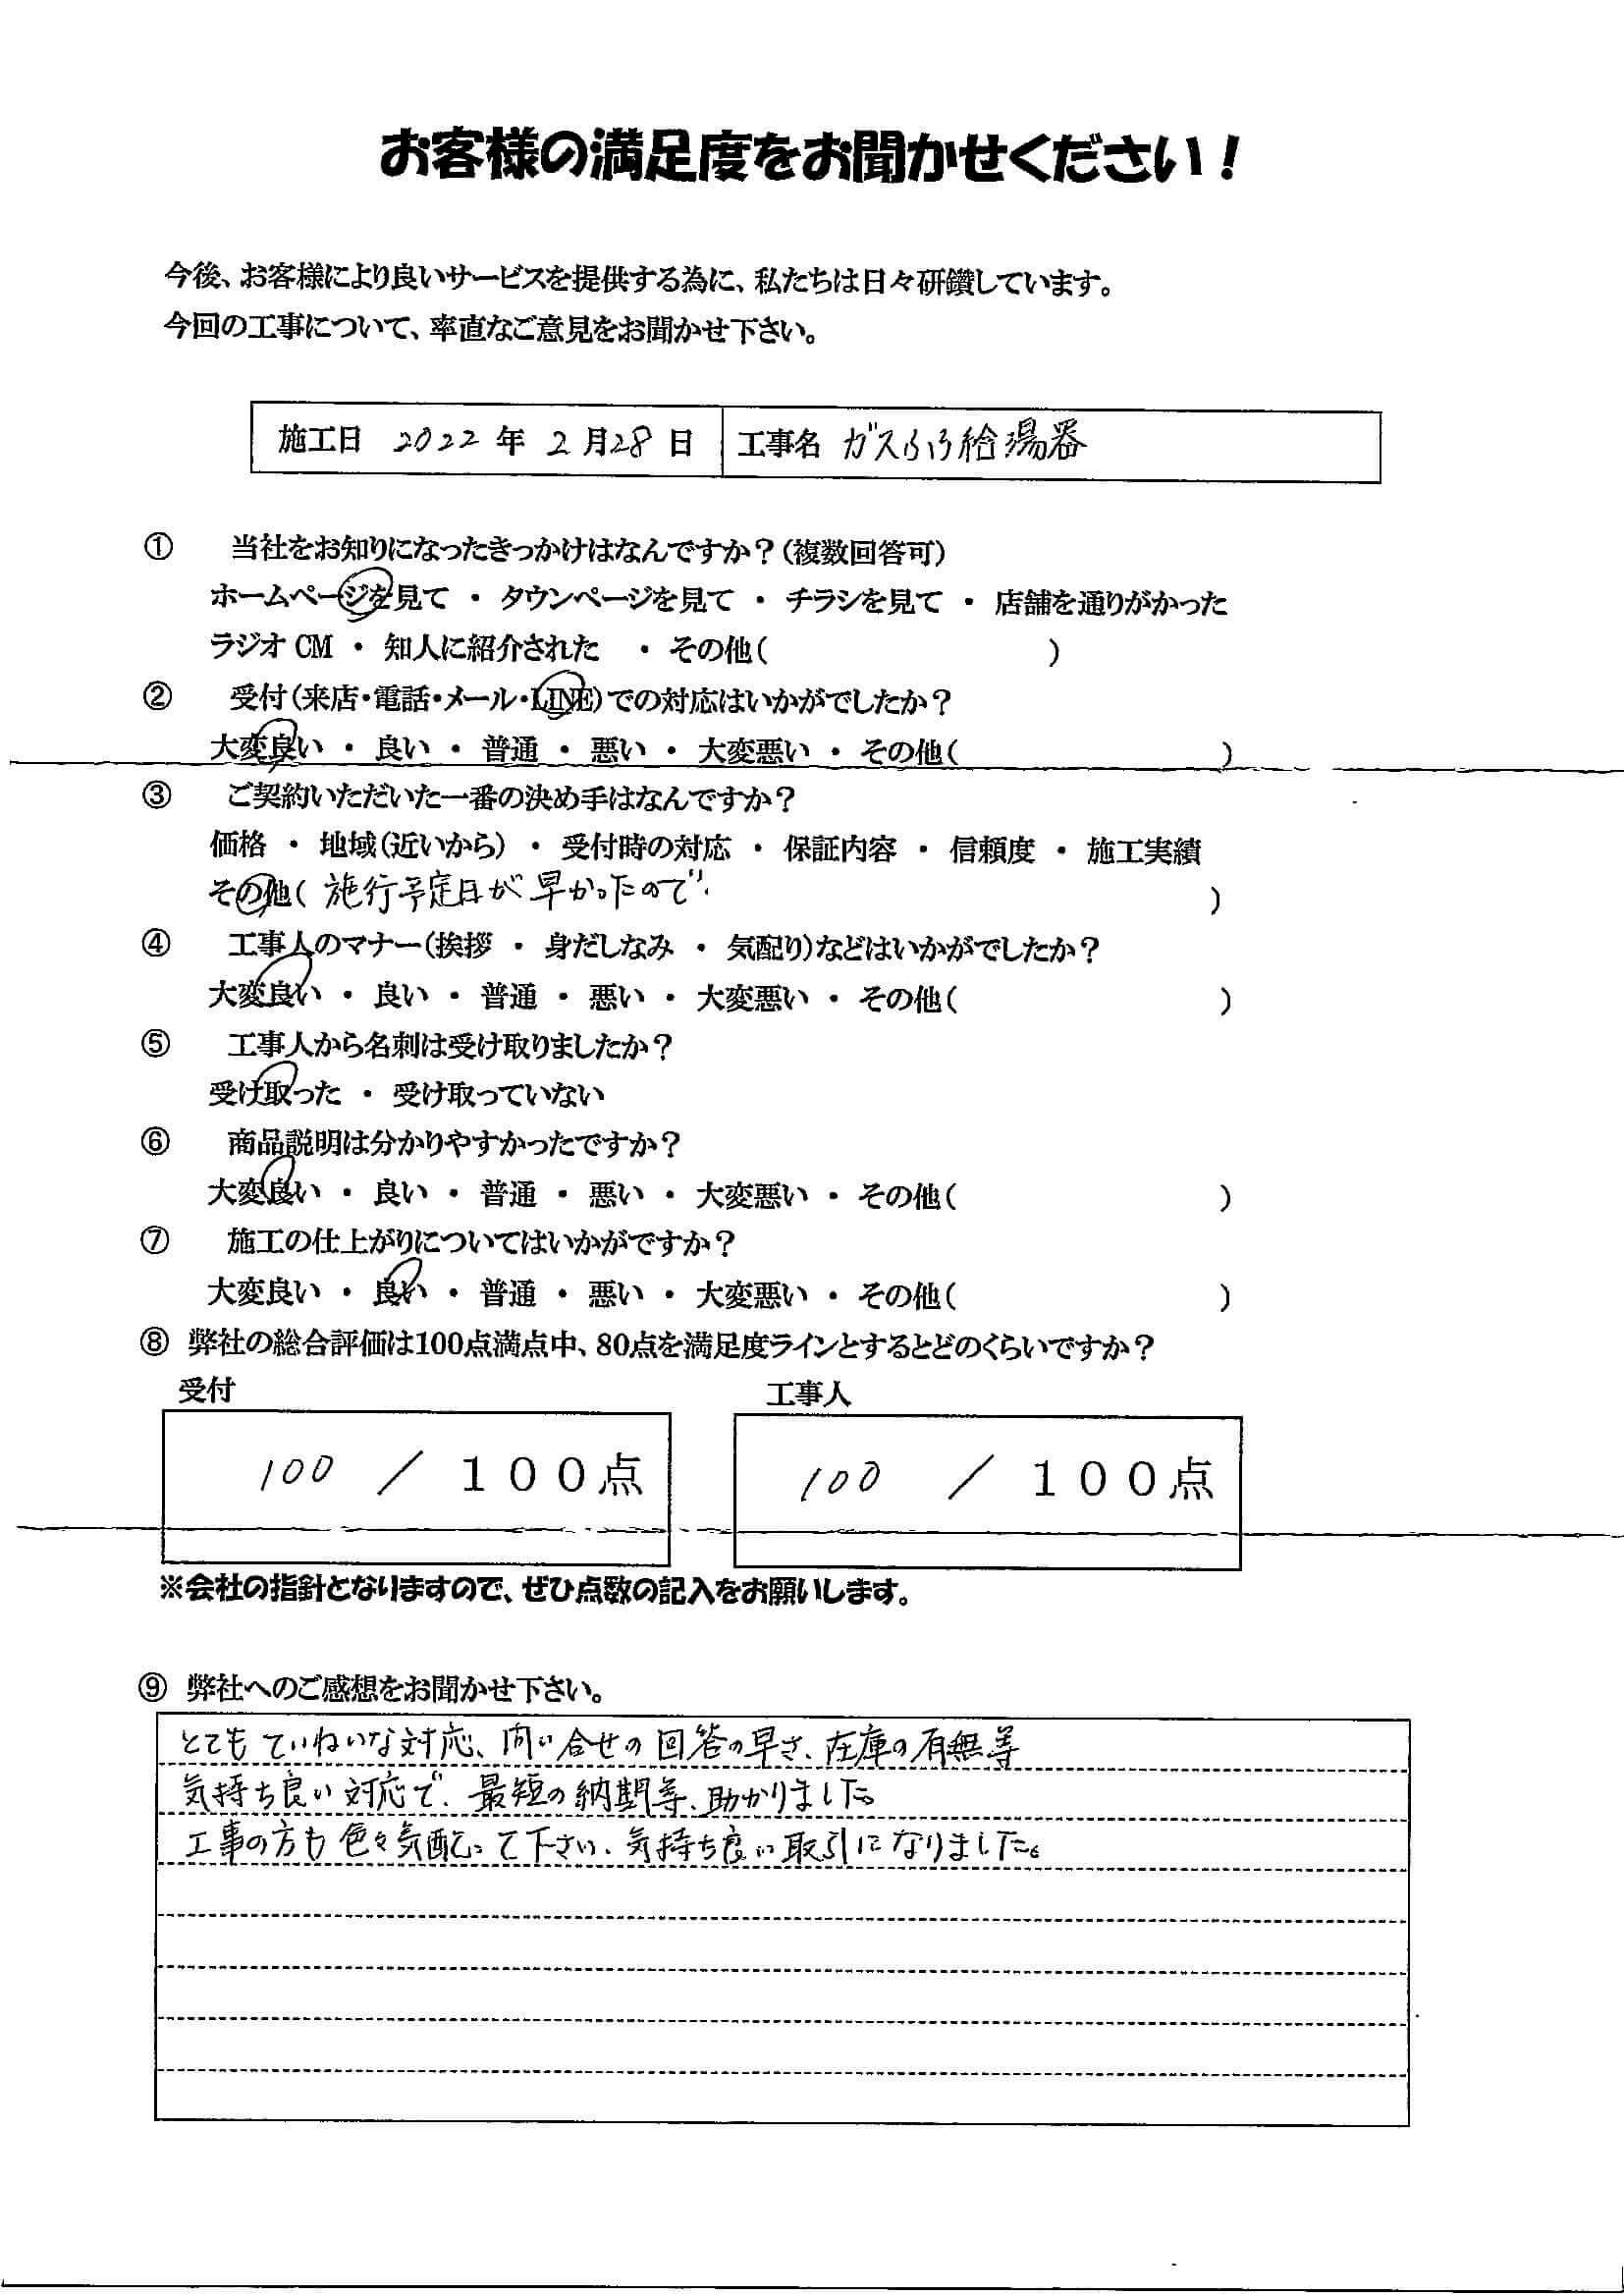 お客様の満足度をお聞かせください！
今後、お客様により良いサービスを提供する為に、私たちは日々研鑽しています。
今回の工事について、率直なご意見をお聞かせ下さい。
施工日 2022 年 2 月 28 日 工事名 ガスふろ給湯器
① 当社をお知りになったきっかけはなんですか？（複数回答可）
ホームページを見て ・ タウンページを見て ・ チラシを見て ・ 店舗を通りがかった
ラジオCM ・ 知人に紹介された ・ その他（ ）
② 受付（来店・電話・メール・LINE）での対応はいかがでしたか？
大変良い ・ 良い ・ 普通 ・ 悪い ・ 大変悪い ・ その他（ ）
③ ご契約いただいた一番の決め手はなんですか？
価格 ・ 地域（近いから） ・ 受付時の対応 ・ 保証内容 ・ 信頼度 ・ 施工実績
その他（ 施行予定日が早かったので ）
④ 工事人のマナー（挨拶 ・ 身だしなみ ・ 気配り）などはいかがでしたか？
大変良い ・ 良い ・ 普通 ・ 悪い ・ 大変悪い ・ その他（ ）
⑤ 工事人から名刺は受け取りましたか？
受け取った ・ 受け取っていない
⑥ 商品説明は分かりやすかったですか？
大変良い ・ 良い ・ 普通 ・ 悪い ・ 大変悪い ・ その他（ ）
⑦ 施工の仕上がりについてはいかがですか？
大変良い ・ 良い ・ 普通 ・ 悪い ・ 大変悪い ・ その他（ ）
⑧ 弊社の総合評価は100点満点中、80点を満足度ラインとするとどのくらいですか？
受付 工事人
100 ／ １００点 100 ／ １００点
※会社の指針となりますので、ぜひ点数の記入をお願いします。
⑨ 弊社へのご感想をお聞かせ下さい。
とてもていねいな対応、問い合せの回答の早さ、在庫の有無等
気持ち良い対応で、最短の納期等、助かりました。
工事の方も色々気配って下さい、気持ち良い取引になりました。